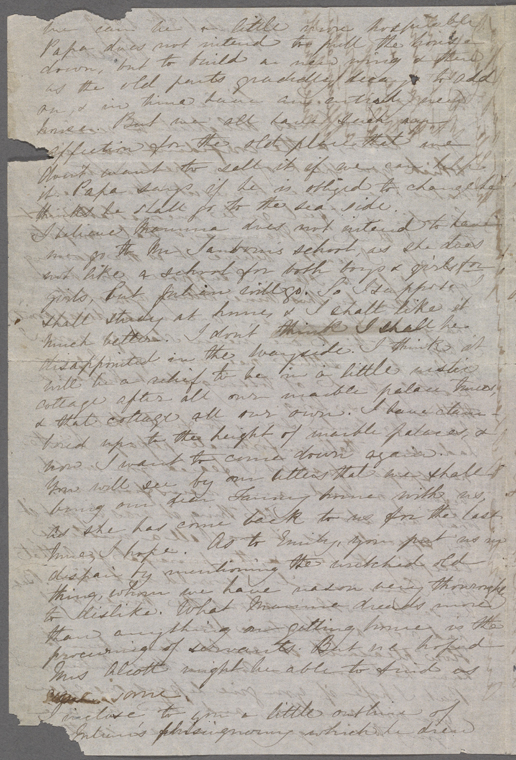 we can be a little more hospitable
Papa does not intend to pull the house
down, but to build a new wing & then
as the old parts gradually decay to add
on, & in time have an entirely new
house. But we all have such an
affection for the old place that we
dont want to sell it if we can help
it. Papa says if he is obliged to change he
thinks he shall go to the sea side.
I believe Mamma does not intend to have
me go to Mr Sanborns school, as she does
not like a school for both boys & girls for
girls, but Julian will go. So I suppose I
shall study at home, & I shall like it
much better. I dont think I shall be
disappointed in the Wayside. I think it
will be a relief to be in a little
cottage after all our marble palace times,
& that cottage all our own. I have clam-
bered up to the height of marble palaces, &
now I want to come down again.
You will see by our letters that we shall
bring our dear Fanny home with us,
as she has come back to us for the last
time, I hope. As to Emily, you put us in
despair by mentioning the wretched old
thing, whom we have reason very thoroughly
to dislike. What Mamma dreads more
than anything on getting home is the
procuring of servants. But we hoped
Mrs Alcott might be able to find us
some
I inclose to you a little outline of
Julian's phisiognomy which he drew